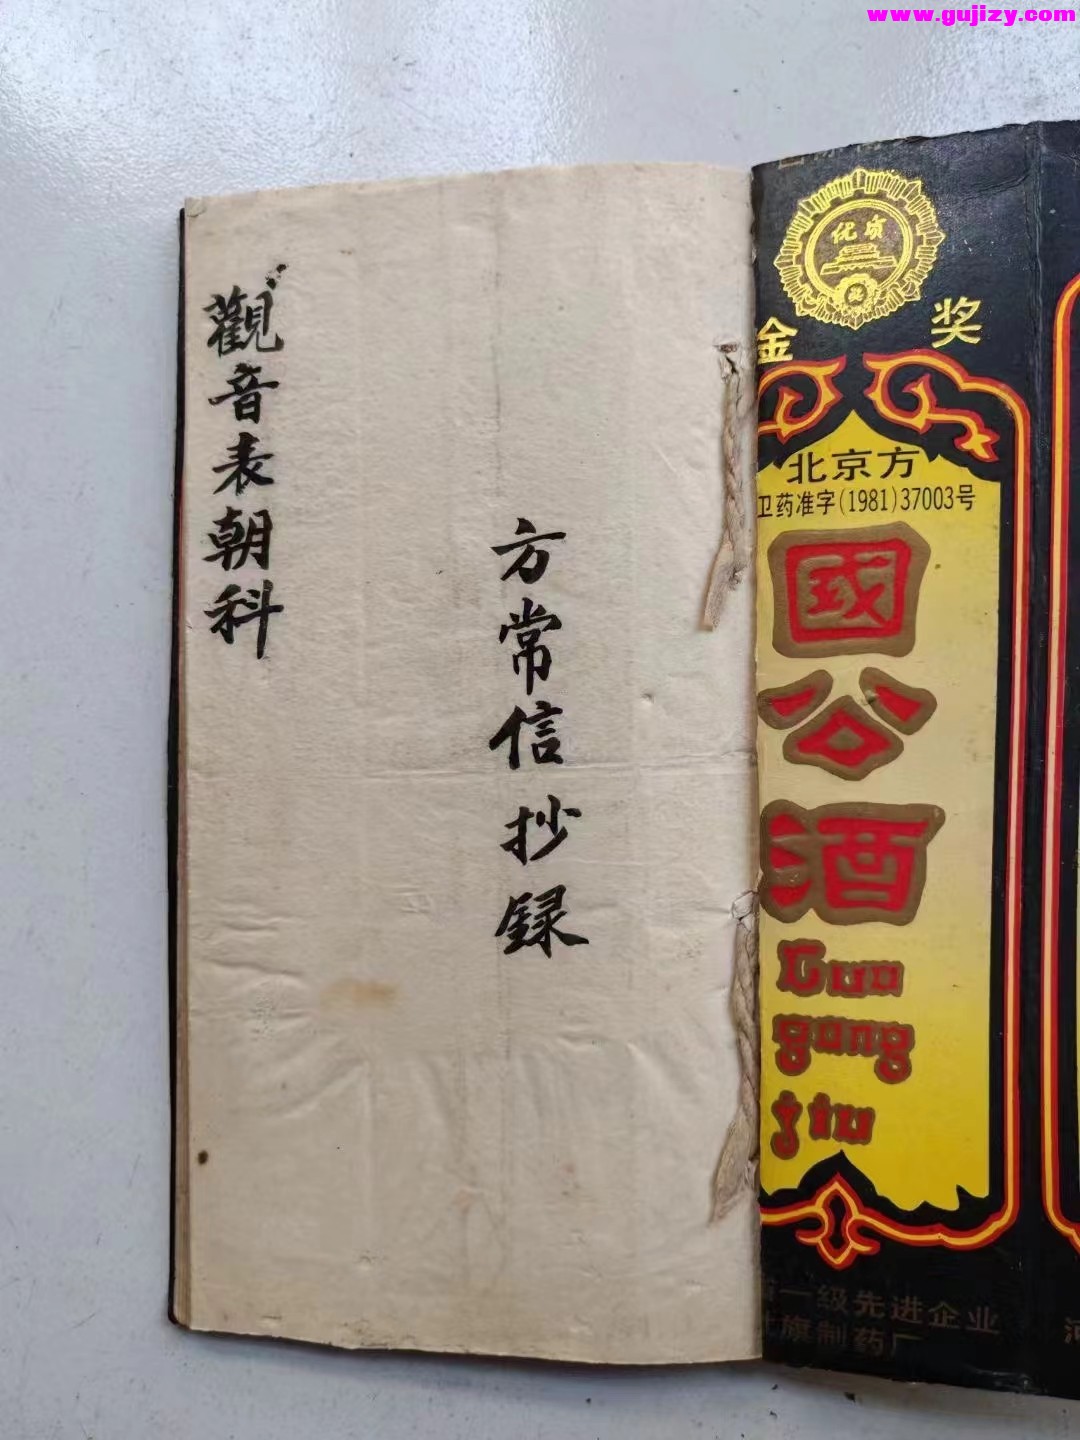 www.gujizy.com
觀音表朝科
方常信抄録
优质
金奖
北京方
卫药准字(1981)37003号
國公酒
Guo
gong
jiu
一级先进企业
旗制药厂